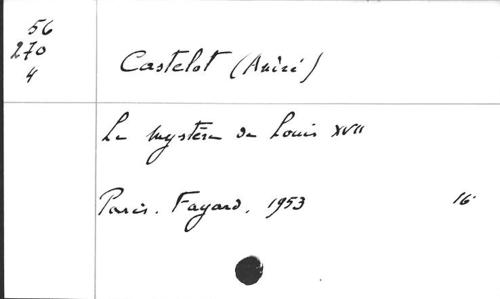 56
270
4
Castelot (André)
Le mystère de Louis XVII
Paris. Fayard. 1953 16°